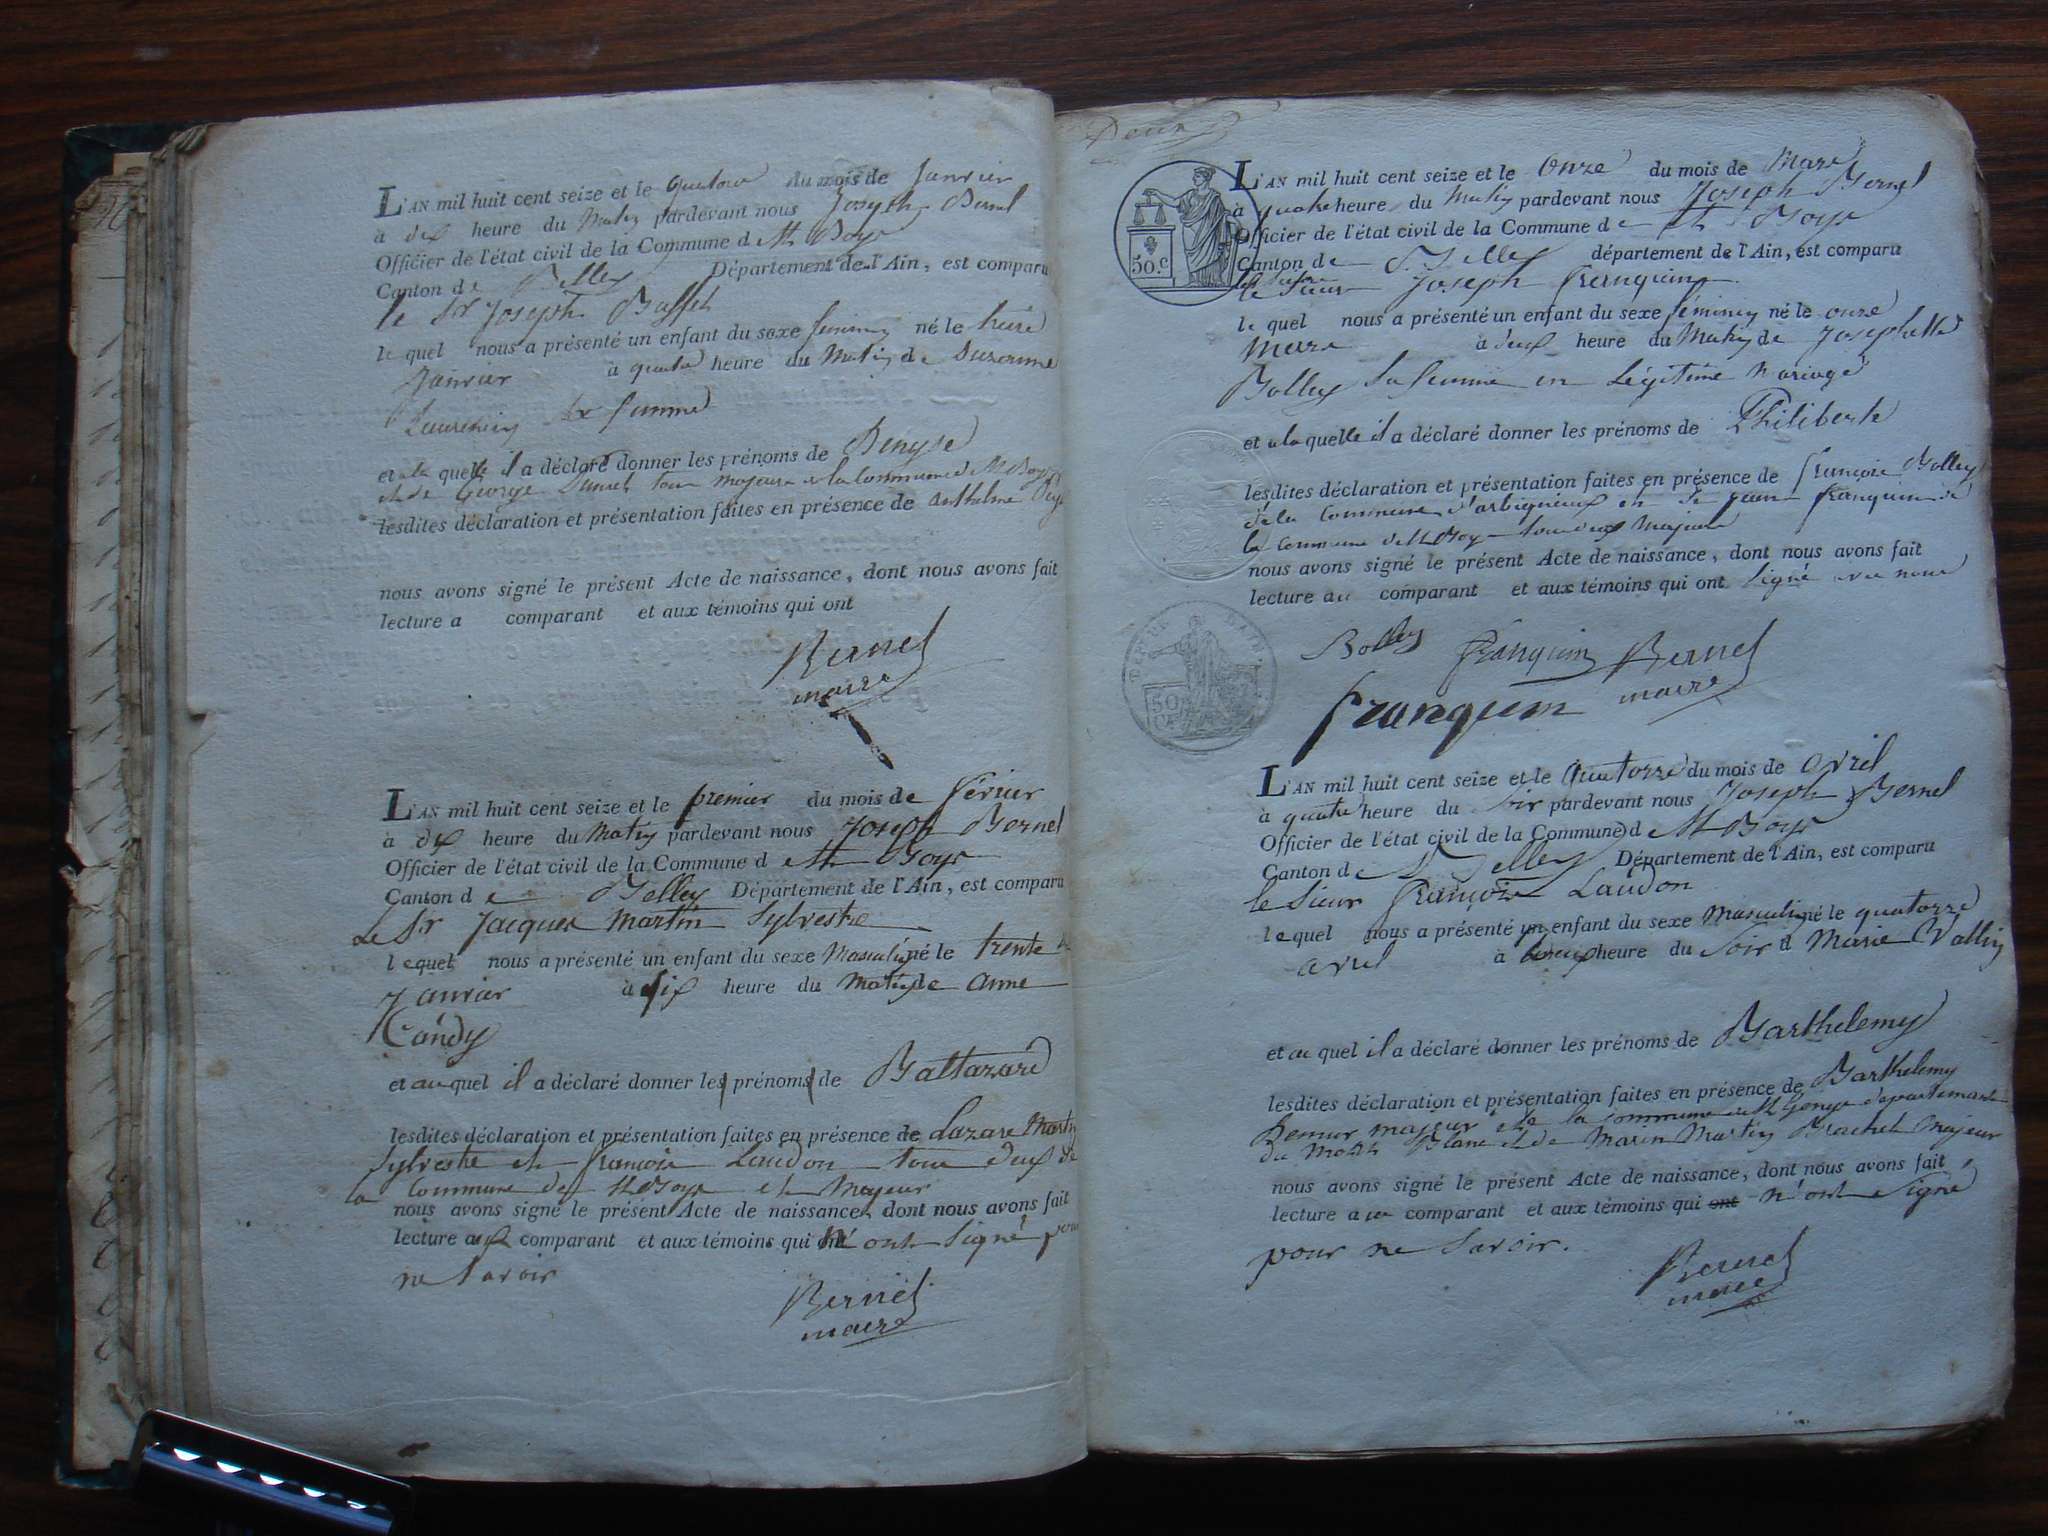 L'AN mil huit cent seize et le quatorze du mois de Janvier
à dix heure du Matin pardevant nous Joseph Bernel
Officier de l'état civil de la Commune de St Boys
Canton de Belley Département de l'Ain, est comparu
le Sr Joseph
le quel nous a présenté un enfant du sexe féminin né le treize
Janvier à quatre heure du Matin de Suzanne
sa femme
et a la quelle il a déclaré donner les prénoms de Denyse
et de George tous majeurs de la Commune de St Boys
lesdites déclaration et présentation faites en présence de Anthelme
nous avons signé le présent Acte de naissance, dont nous avons fait
lecture a comparant et aux témoins qui ont
Bernel
maire
L'AN mil huit cent seize et le premier du mois de février
à dix heure du Matin pardevant nous Joseph Bernel
Officier de l'état civil de la Commune de St Boys
Canton de Belley Département de l'Ain, est comparu
Le Sr Jacques Martin Sylvestre
lequel nous a présenté un enfant du sexe Masculin né le trente
Janvier à six heure du Matin de Anne
Candy
et au quel il a déclaré donner les prénoms de Baltazard
lesdites déclaration et présentation faites en présence de Lazare Martin
Sylvestre et françois Laudon tous deux de
la Commune de St Boys et Majeur
nous avons signé le présent Acte de naissance, dont nous avons fait
lecture aux comparant et aux témoins qui n'ont Signé pour
ne Savoir
Bernel
maire
L'AN mil huit cent seize et le onze du mois de Mars
à quatre heure du Matin pardevant nous Joseph Bernel
Officier de l'état civil de la Commune de St Boys
Canton de Belley département de l'Ain, est comparu
le Sieur Joseph franquin
50.c
le quel nous a présenté un enfant du sexe féminin né le onze
Mars à deux heure du Matin de Josephette
Bolley Sa femme en Légitime Mariage
et a la quelle il a déclaré donner les prénoms de Philiberte
lesdites déclaration et présentation faites en présence de françois Bolley
de la Commune d'arbignieux et de jean franquin de
la Commune de St Boys tous deux Majeurs
nous avons signé le présent Acte de naissance, dont nous avons fait
lecture au comparant et aux témoins qui ont Signé avec nous
Bolley franquin Bernel
maire
franquin
50
L'AN mil huit cent seize et le Quatorze du mois de avril
à quatre heure du soir pardevant nous Joseph Bernel
Officier de l'état civil de la Commune de St Boys
Canton de Belley Département de l'Ain, est comparu
le Sieur françois Laudon
lequel nous a présenté un enfant du sexe Masculin né le quatorze
avril à deux heure du Soir d Marie Vallin
et au quel il a déclaré donner les prénoms de Barthelemy
lesdites déclaration et présentation faites en présence de Barthelemy
majeur de la Commune de St Genys département
du Mont Blanc et de Marin Martin Brachet Majeur
nous avons signé le présent Acte de naissance, dont nous avons fait
lecture au comparant et aux témoins qui ont n'ont Signé
pour ne Savoir.
Bernel
maire